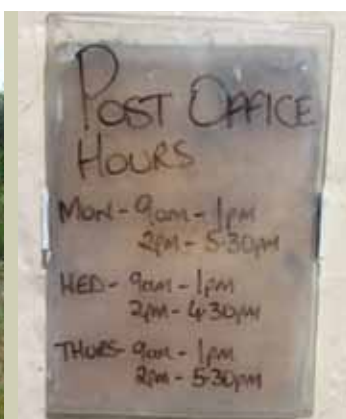 POST OFFICE
HOURS
MON - 9am - 1pm
2pm - 5.30pm
WED - 9am - 1pm
2pm - 4.30pm
THURS - 9am - 1pm
2pm - 5.30pm